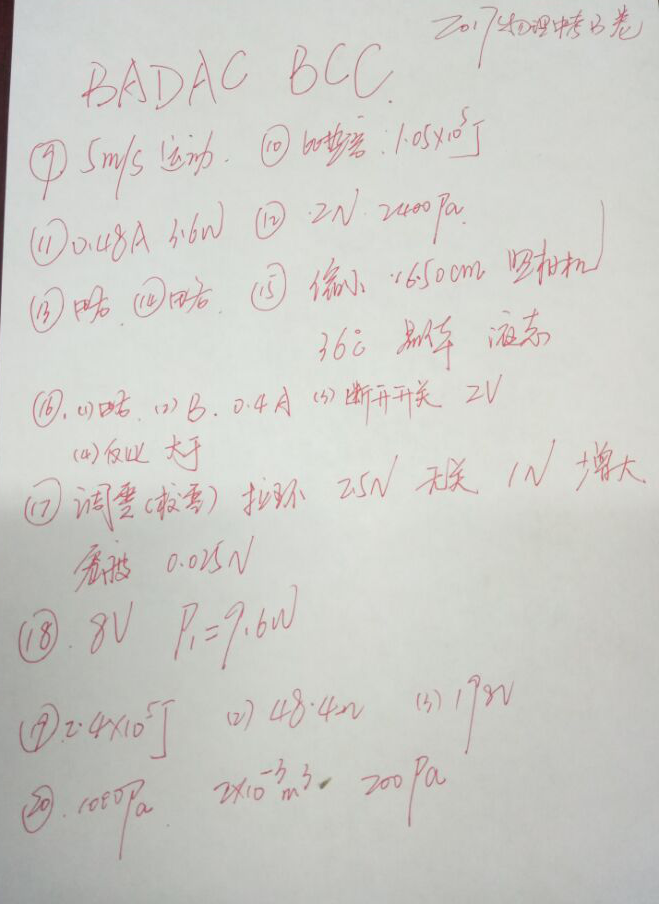 2017物理中考B卷
BADAC BCC.
⑨ 5m/s 运动. ⑩ 1.05×10⁵J
⑪ 0.48A 3.6W ⑫ 2N 2400Pa.
⑬ 略. ⑭ 略. ⑮ 缩小 16.50cm 照相机
36℃ 晶体 液态
⑯. (1) 略. (2) B. 0.4A (3) 断开开关 2V
(4) 大于
⑰ 调零(校零) 拉环 2.5N 无关 1N 增大.
0.025N
⑱. 8V P₁=9.6W
⑲ 2.4×10⁵J (2) 48.4Ω (3) 198V
⑳. 1000Pa. 2×10⁻³m³. 200Pa